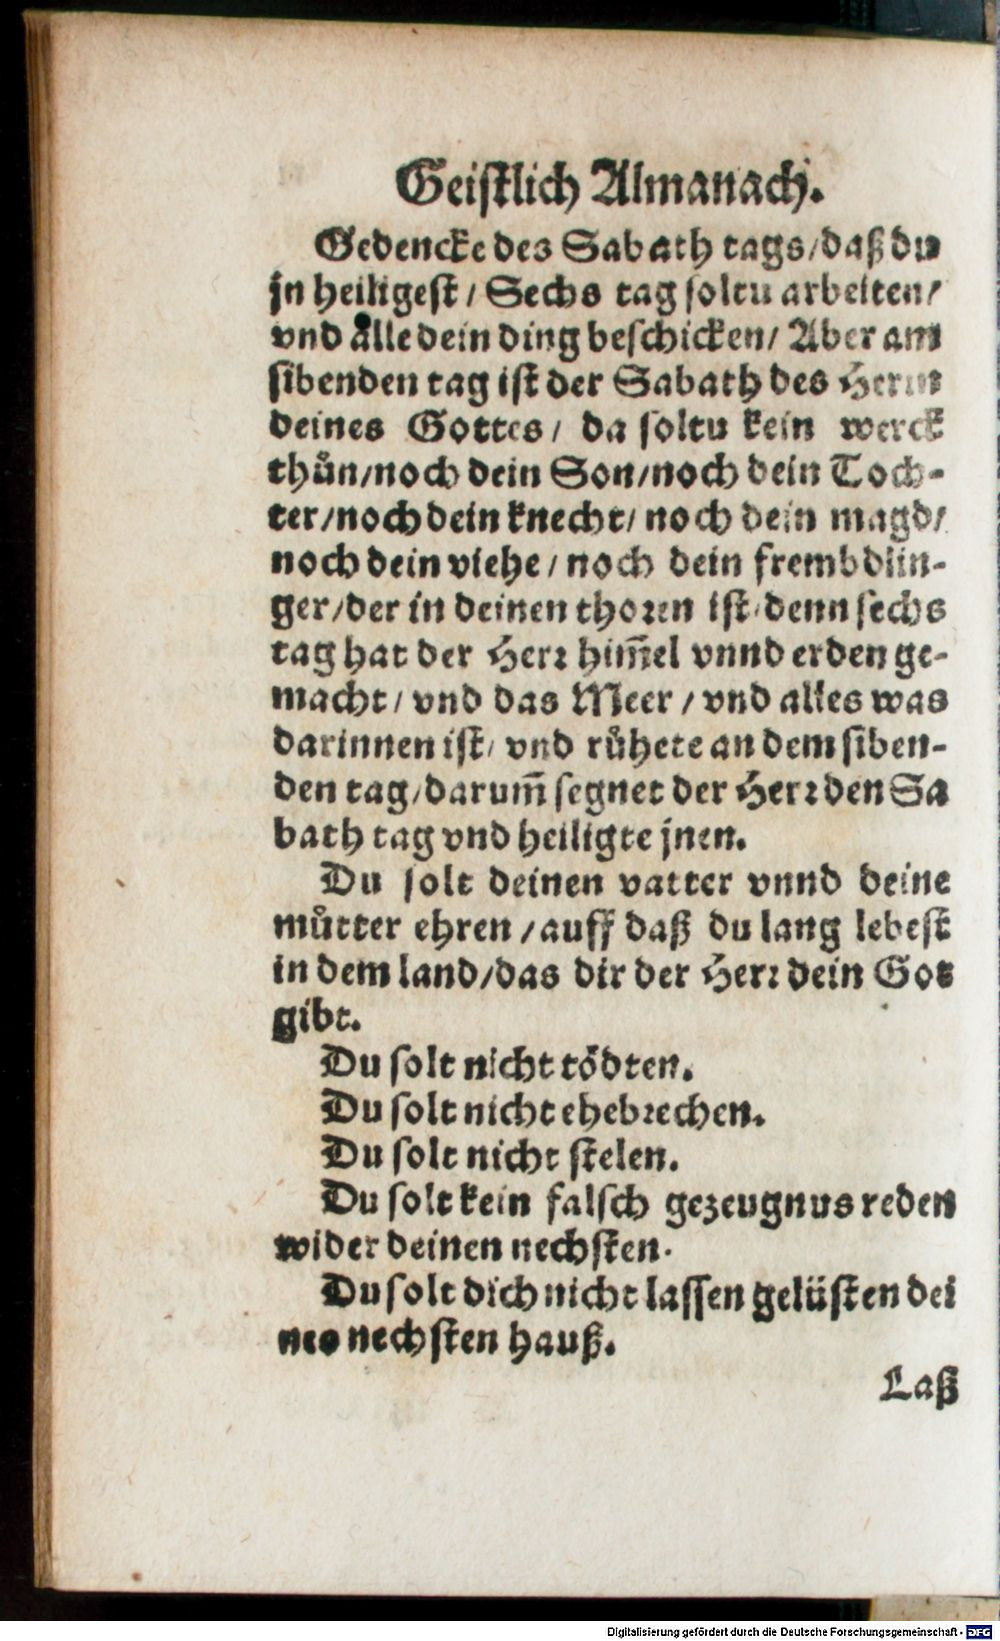 Geistlich Almanach.
Gedencke des Sabath tags/daß du
jn heiligest/ Sechs tag soltu arbeiten/
vnd alle dein ding beschicken/ Aber am
sibenden tag ist der Sabath des Herrn
deines Gottes/ da soltu kein werck
thůn/noch dein Son/noch dein Toch-
ter/noch dein knecht/ noch dein magd/
noch dein viehe/ noch dein frembdlin-
ger/der in deinen thoren ist/denn sechs
tag hat der Herr him̃el vnnd erden ge-
macht/ vnd das Meer/ vnd alles was
darinnen ist/ vnd růhete an dem siben-
den tag/darum̃ segnet der Herr den Sa
bath tag vnd heiligte jnen.
Du solt deinen vatter vnnd deine
můtter ehren/auff daß du lang lebest
in dem land/das dir der Herr dein Got
gibt.
Du solt nicht tödten.
Du solt nicht ehebrechen.
Du solt nicht stelen.
Du solt kein falsch gezeugnus reden
wider deinen nechsten.
Du solt dich nicht lassen gelüsten dei
nes nechsten hauß.
Laß
Digitalisierung gefördert durch die Deutsche Forschungsgemeinschaft - DFG